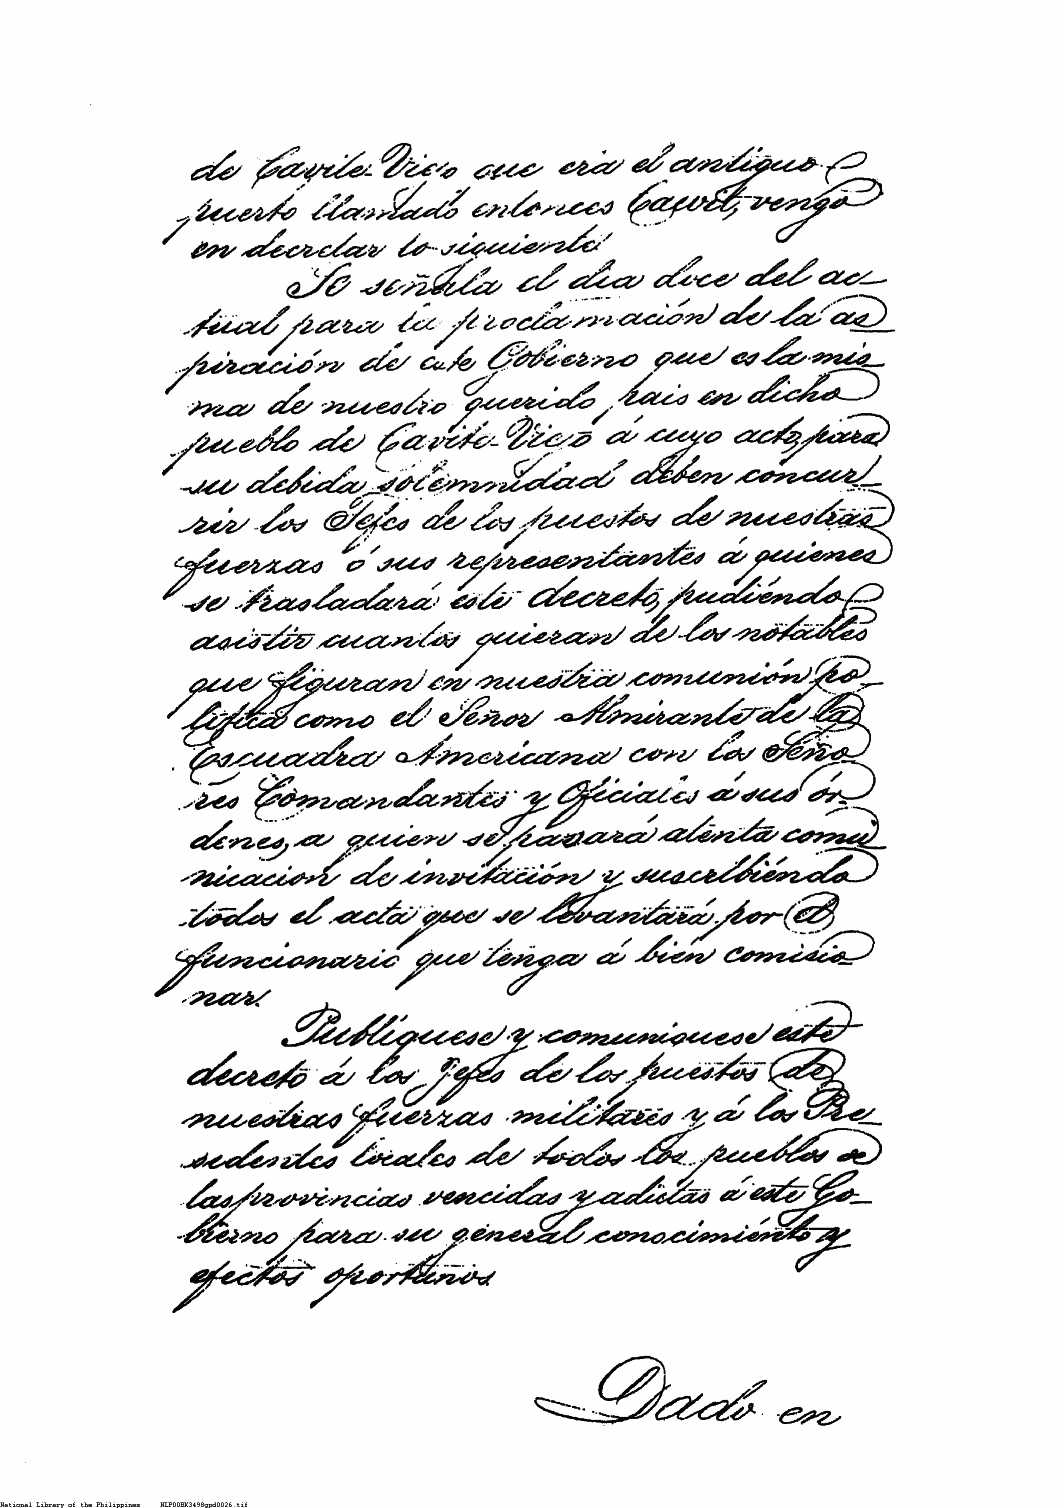 de Cavite-Viejo que era el antiguo
puerto llamado entonces Cawit, vengo
en decretar lo siguiente:
Se señala el dia doce del ac-
tual para la proclamación de la as-
piración de este Gobierno que es la mis-
ma de nuestro querido pais en dicho
pueblo de Cavite-Viejo á cuyo acto, para
su debida solemnidad deben concur-
rir los Jefes de los puestos de nuestras
fuerzas ó sus representantes á quienes
se trasladará este decreto, pudiéndo
asistir cuantos quieran de los notables
que figuran en nuestra comunión po-
lítica como el Señor Almirante de la
Escuadra Americana con los Seño-
res Comandantes y Oficiales á sus ór-
denes, a quien se pasará atenta comu-
nicacion de invitación y suscribiéndo
todos el acta que se levantará por el
funcionario que tenga á bién comisio-
nar.
Publíquese y comuniquese este
decreto á los Jefes de los puestos de
nuestras fuerzas militares y á los Pre-
sedentes locales de todos los pueblos de
las provincias vencidas y adictas á este Go-
bierno para su general conocimiénto y
efectos oportunos.
Dado en
National Library of the Philippines NLP00BK3498gpd0026.tif